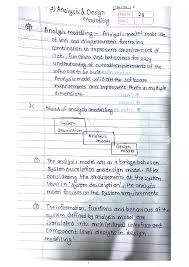 3) Analysis & Design
Modelling
24
Analysis modelling :- Analysis model make use
of text and diagrammatic forms in a
combination to represent requirement of
data, functions and behaviour for easy
understanding of overall requirements of the
software to be built.
Analysis model validate the software
requirements and represent them in multiple
dimensions.
Need of analysis modelling :-
System
description
Analysis
model
Design
model
① The analysis model acts as a bridge between
system description and design model. After
considering the requirements at the system
level in "system description", the analysis
model focuses on the system requirements
② The information, functions and behaviour of the
system defined by analysis model are
translated into architectural interface and
component level designs in design
modelling.